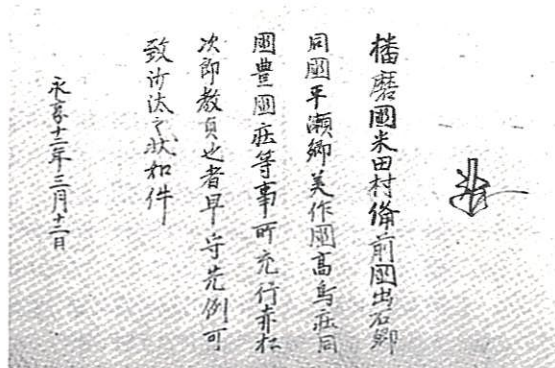 播磨國米田村備前國出石郷
同國平瀬郷美作國高鳥荘同
國豊國荘等事所充行赤松
次郎教貞也者早守先例可
致沙汰之状如件
永享十二年三月十二日